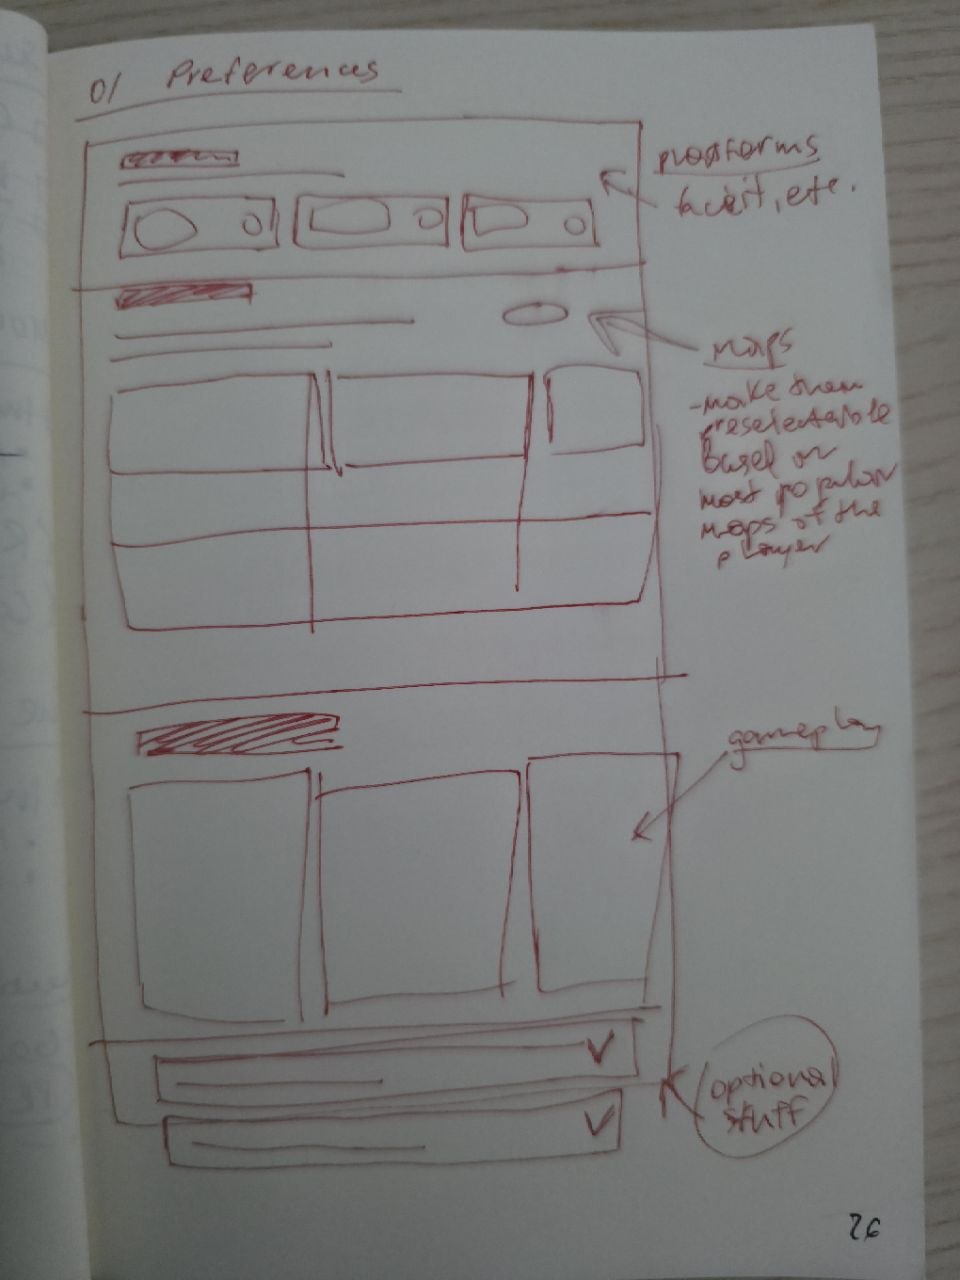 01 Preferences
platforms
faceit, etc.
maps
- make them
preselectable
based on
most popular
maps of the
player
gameplay
optional
stuff
26